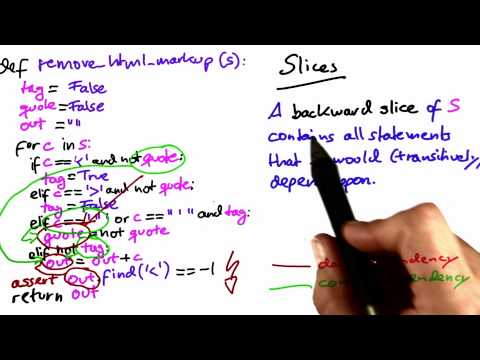 def remove_html_markup(s):
tag = False
quote = False
out = ""
for c in s:
if c == '<' and not quote:
tag = True
elif c == '>' and not quote:
tag = False
elif c == or c == "'" and tag:
quote = not quote
elif not tag:
out = out + c
assert out.find('<') == -1
return out
Slices
A backward slice of S
contains all statements
that would (transitively
depend upon.